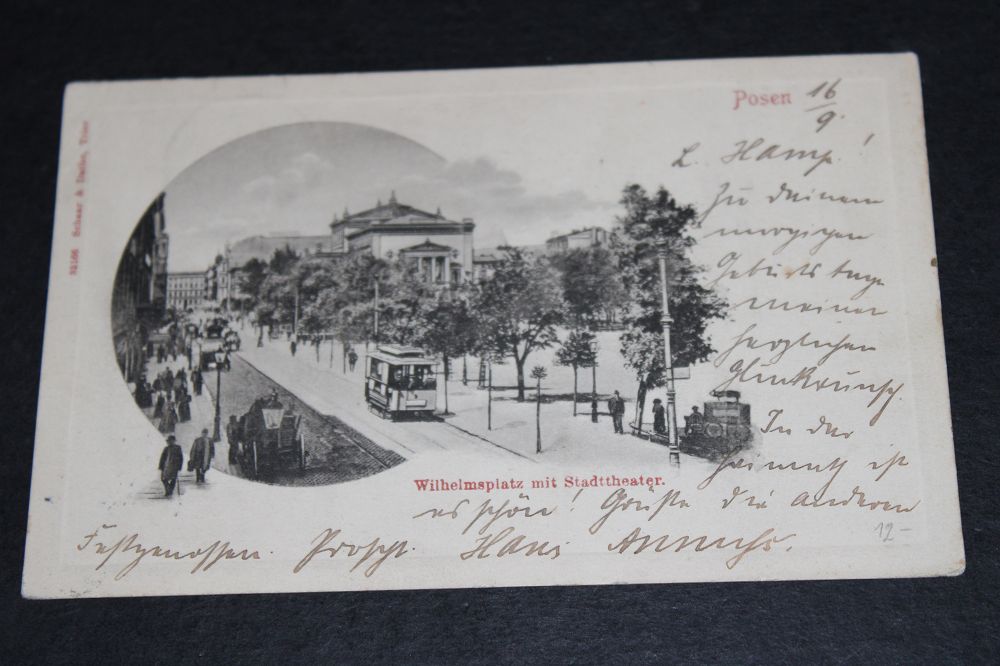 Posen 16/9.
L. Hamp!
Zu deinem
morgigen
Geburtstage
meinen
herzlichen
Glückwunsch.
In der
Heimath ist
es schön! Grüße die anderen
Festgenossen. Prosit. Hans
Wilhelmsplatz mit Stadttheater.
32166 Schaar & Dathe, Trier
12-